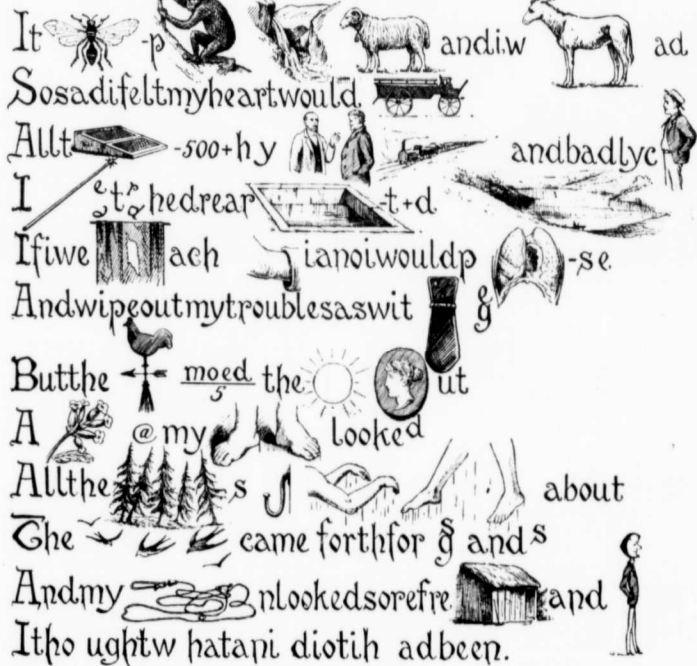 It -p andi.w ad
Sosadifeltmyheartwould
Allt -500+hy andbadlyc
I hedrear -t+d
Ifiwe ach ianoiwouldp -se
Andwipeoutmytroublesaswit g
Butthe moed/5 the ut
A @ my looked
Allthe s about
The came forthfor g ands
Andmy nlookedsorefre and
Itho ughtw hatani diotih adbeen.